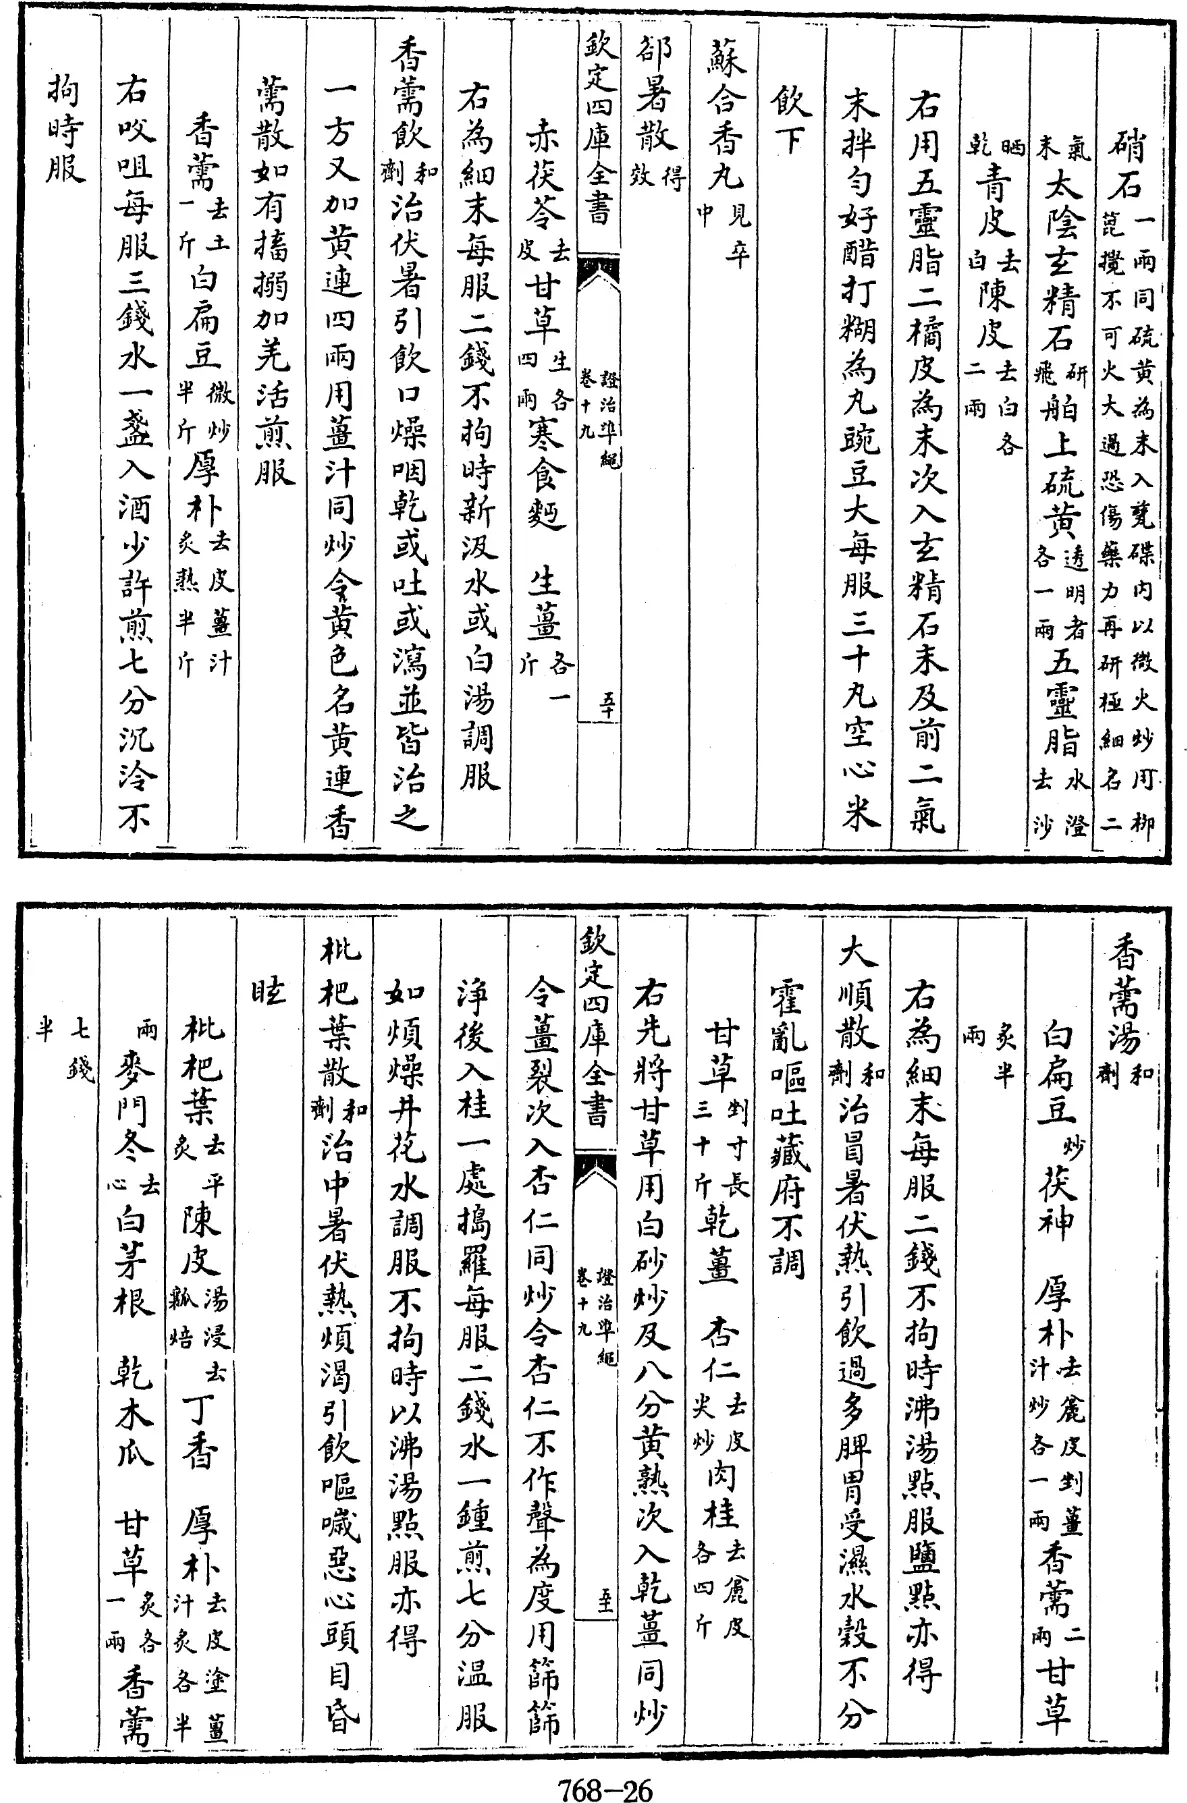 硝石一兩同硫黃為末入甆碟内以微火炒用栁箆攪不可火大過恐傷藥力再研極細名二
氣末太陰玄精石研飛舶上硫黃透明者各一兩五靈脂水澄去沙
晒乾青皮去白陳皮去白各二兩
右用五靈脂二橘皮為末次入玄精石末及前二氣
末拌匀好醋打糊為丸豌豆大每服三十丸空心米
飲下
蘇合香丸見卒中
郤暑散得效
欽定四庫全書 證治準繩 卷十九 五十
赤茯苓去皮甘草生各四兩寒食麪 生薑各一斤
右為細末每服二錢不拘時新汲水或白湯調服
香薷飲和劑治伏暑引飲口燥咽乾或吐或瀉並皆治之
一方又加黃連四兩用薑汁同炒令黃色名黃連香
薷散如有搐搦加羌活煎服
香薷去土一斤白扁豆微炒半斤厚朴去皮薑汁炙熟半斤
右㕮咀每服三錢水一盞入酒少許煎七分沉冷不
拘時服
香薷湯和劑
白扁豆炒茯神 厚朴去麄皮剉薑汁炒各一兩香薷二兩甘草
炙半兩
右為細末每服二錢不拘時沸湯點服鹽點亦得
大順散和劑治冒暑伏熱引飲過多脾胃受濕水穀不分
霍亂嘔吐藏府不調
甘草剉寸長三十斤乾薑 杏仁去皮尖炒肉桂去麄皮各四斤
右先將甘草用白砂炒及八分黃熟次入乾薑同炒
欽定四庫全書 證治準繩 卷十九 五十一
令薑裂次入杏仁同炒令杏仁不作聲為度用篩篩
淨後入桂一處搗羅每服二錢水一鍾煎七分温服
如煩燥井花水調服不拘時以沸湯點服亦得
枇杷葉散和劑治中暑伏熱煩渴引飲嘔噦惡心頭目昏
眩
枇杷葉去平炙陳皮湯浸去瓤焙丁香 厚朴去皮塗薑汁炙各半
兩麥門冬去心白茅根 乾木瓜 甘草炙各一兩香薷
七錢半
768-26